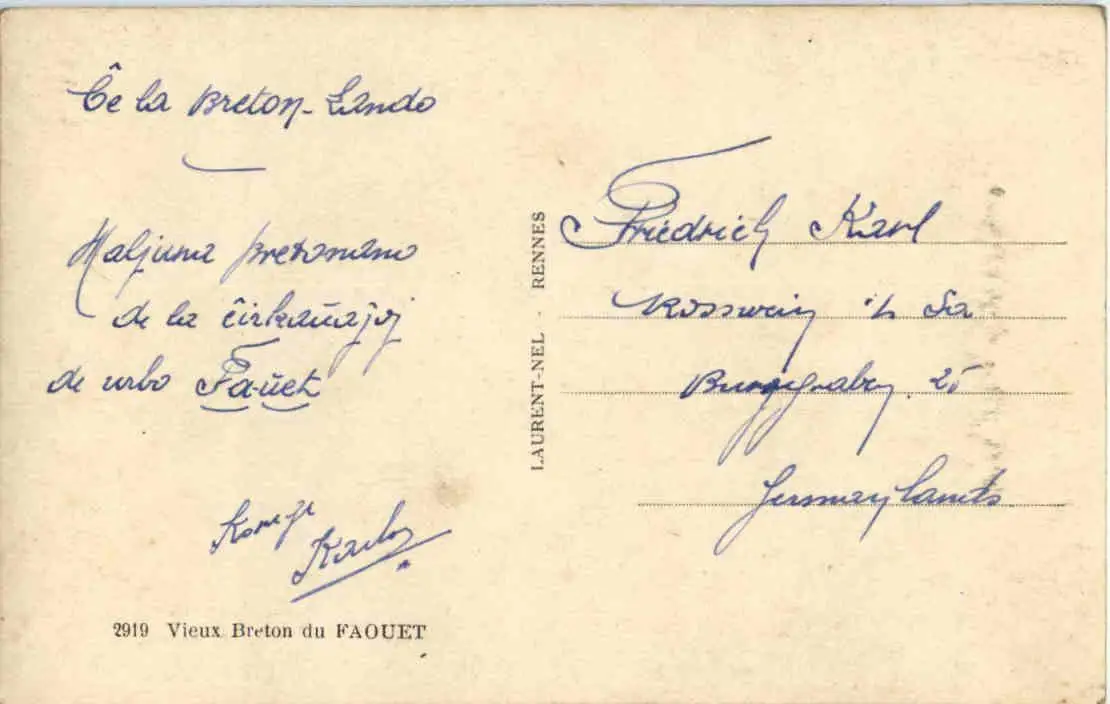 Ĉe la Breton-Lando
Maljuna bretonano
de la ĉirkaŭaĵoj
de urbo Fa-ŭet
Kore ĝe
Karlo
2919 Vieux Breton du FAOUET
LAURENT-NEL - RENNES
Friedrich Karl
Rosswein i/ Sa
Burggraben 25
Germanylando